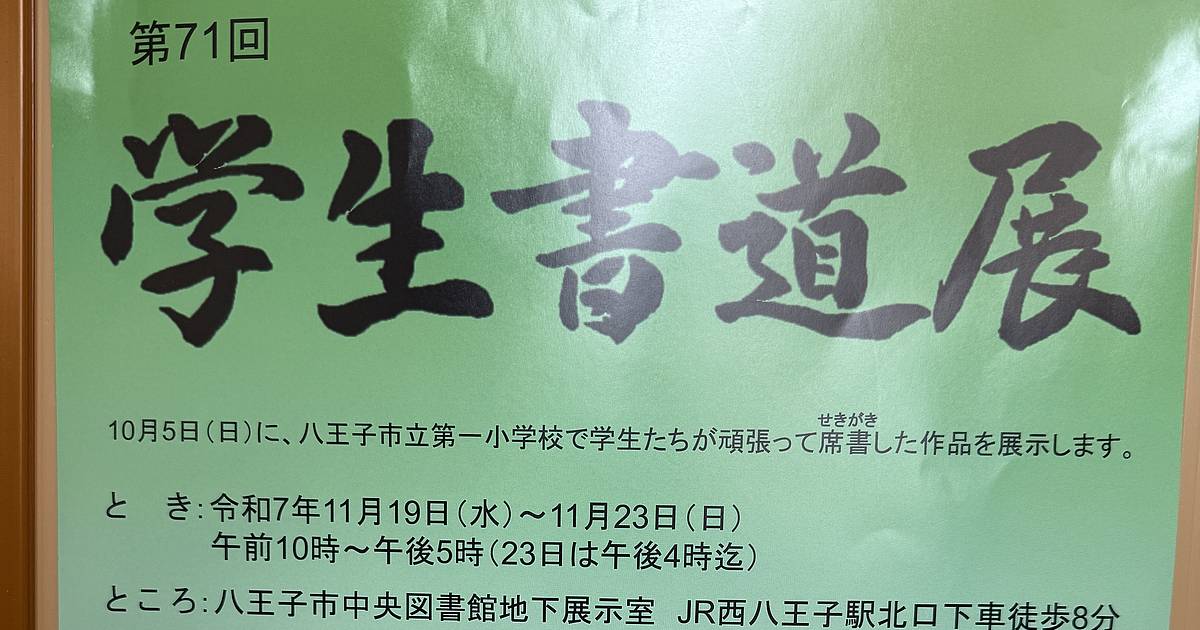 第71回
学生書道展
10月5日（日）に、八王子市立第一小学校で学生たちが頑張って席書した作品を展示します。
せきがき
と　き：令和7年11月19日（水）～11月23日（日）
午前10時～午後5時（23日は午後4時迄）
ところ：八王子市中央図書館地下展示室　JR西八王子駅北口下車徒歩8分